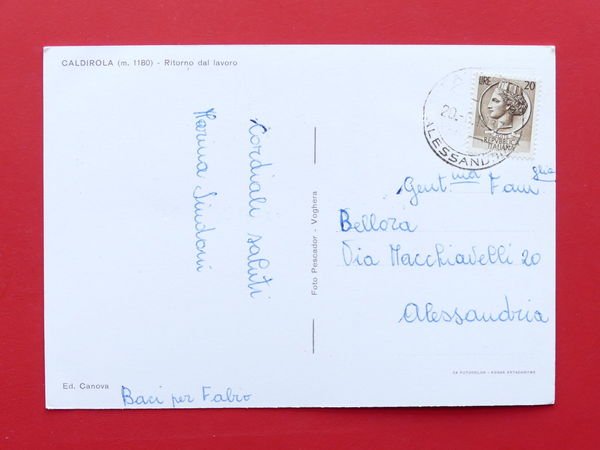 CALDIROLA (m. 1180) - Ritorno dal lavoro
Cordiali saluti
Marina Sindoni
Baci per Fabio
Ed. Canova
Foto Pescador - Voghera
LIRE 20
REPVBBLICA
ITALIANA
ALESSANDRIA
Gent.ma Fam glia
Bellora
Via Macchiavelli 20
Alessandria